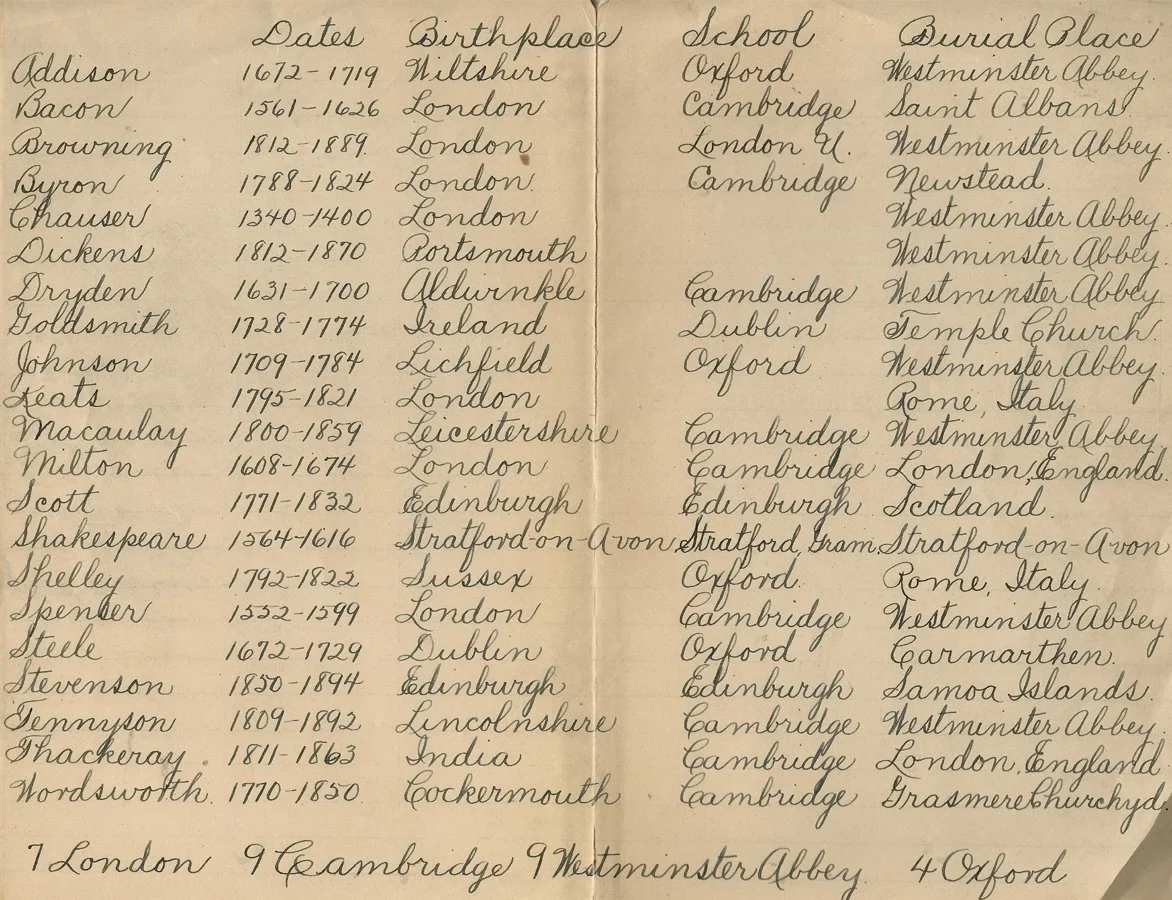 Dates Birthplace School Burial Place
Addison 1672-1719 Wiltshire Oxford Westminster Abbey.
Bacon 1561-1626 London Cambridge Saint Albans.
Browning 1812-1889. London London U. Westminster Abbey.
Byron 1788-1824 London. Cambridge Newstead.
Chauser 1340-1400 London Westminster Abbey.
Dickens 1812-1870 Portsmouth Westminster Abbey.
Dryden 1631-1700 Aldwinkle Cambridge Westminster Abbey
Goldsmith 1728-1774 Ireland Dublin Temple Church.
Johnson 1709-1784 Lichfield Oxford Westminster Abbey.
Keats 1795-1821 London Rome, Italy.
Macaulay 1800-1859 Leicestershire Cambridge Westminster Abbey
Milton 1608-1674 London Cambridge London, England.
Scott 1771-1832 Edinburgh Edinburgh Scotland.
Shakespeare 1564-1616 Stratford-on-Avon Stratford, Gram. Stratford-on-Avon
Shelley 1792-1822 Sussex Oxford. Rome, Italy.
Spenser 1552-1599 London Cambridge Westminster Abbey
Steele 1672-1729 Dublin Oxford Carmarthen.
Stevenson 1850-1894 Edinburgh Edinburgh Samoa Islands.
Tennyson 1809-1892 Lincolnshire Cambridge Westminster Abbey.
Thackeray. 1811-1863 India Cambridge London, England
Wordsworth. 1770-1850 Cockermouth Cambridge Grasmere Churchyd.
7 London 9 Cambridge 9 Westminster Abbey. 4 Oxford